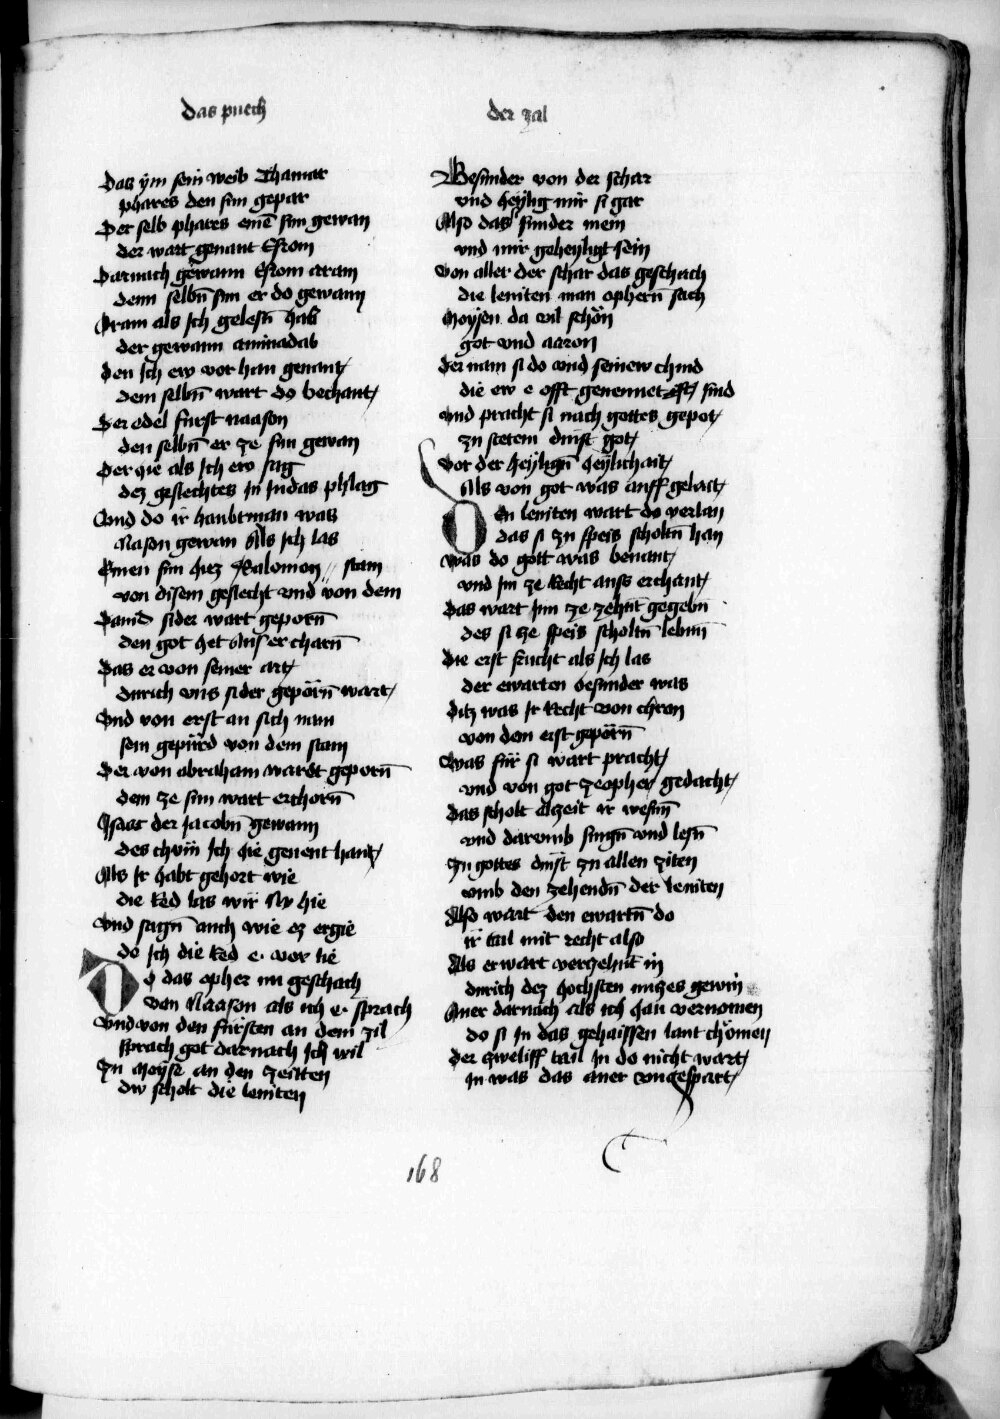 das puech
der zal
Das ÿm sein weib Thamar
phares den sun gepar
Der selb phares einē sun gewan
der wart genant Esrom
Darnach gewann Esrom aram
denn selbn̄ sun er do gewann
Aram als Ich gelesn̄ hab
der gewann aminadab
Den Ich ew vor han genant
dem selbn̄ wart do bechant
Der edel fürst naason
den selbn̄ er ze sun gewan
Der hie als Ich ew sag
dez geslechtes In Iudas phlag
Vnd do ir haubtman was
Nason gewan Als Ich las
Einen sun hiez Salomon stam
von disem geslecht vnd von dem
Dauid sider wart geporn̄
den got het Auserchorn̄
Das er von seiner art
durich vns sider geporn̄ wart
Vnd von erst an sich nam
sein gepürd von dem stam
Der von abraham wardt geporn̄
dem ze sun wart erchorn̄
Isaac der Iacobn̄ gewann
des chün Ich hie genent han
Als Ir habt gehort wie
die Red las wir Nv hie
Vnd sagn̄ auch wie ez ergie
do Ich die Red e. vor lie
Do das opher nu geschach
Von Naason als ich e. sprach
Vnd von den fürsten an dem zil
sprach got darnach Ich wil
Zu Moyse an den zeitten
dw scholt die leuiten
Besunder von der schar
vnd heylig mir si gar
Also das sunder mein
vnd mir geheyligt sein
Von aller der schar das geschach
die leuiten man ophern̄ sach
Moysen da vil schön
got vnd aaron
Der nam si do vnd seinew chind
die ew e offt genennet sind
Vnd pracht si nach gottes gepot
zu stetem dinst got
Vor der heylign̄ heylichait
Als von got was auff gelait
Den leuiten wart do verlan
das si zu speis scholtn̄ han
Was do gott was benant
vnd Im ze Recht auss erchant
Das wart Inn ze zehn̄t gegebn̄
des si ze speis scholtn̄ lebnn̄
Die erst frucht als Ich las
der ewarten besunder was
Ditz was Ir Recht von chron
von dem erst geporn̄
Was für si wart pracht
vnd von got ze opher gedacht
Das scholt alzeit ir wesnn̄
vnd darvmb singn̄ vnd lesn̄
Zu gottes dinst zu allen ziten
vmb den zehendn̄ der leuiten
Also wart den ewartn̄ do
ir tail mit recht also
Als er wart verzehnt in
durich dez hochsten nuczes gewin
Auer darnach als ich han vernomen
do si In das gehaissen lant chömen
Der zweliff tail In do nicht wart
In was das auer vngespart
168